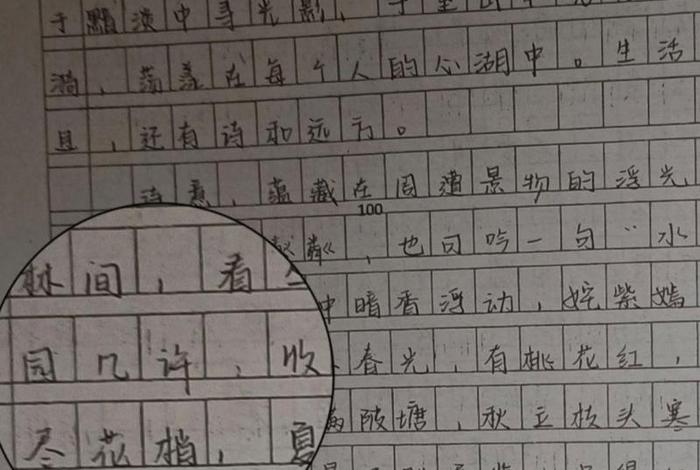 于黯淡中寻光影,于
漪,荡漾在每个人的心湖中。生活
且,还有诗和远方。
诗意,蕴藏在周遭景物的浮光
100
粼,也可吟一句“水
中暗香浮动,姹紫嫣
春光,有桃花红,
满陂塘,秋立枝头寒
林间,看
园几许,收
尽花梢,夏